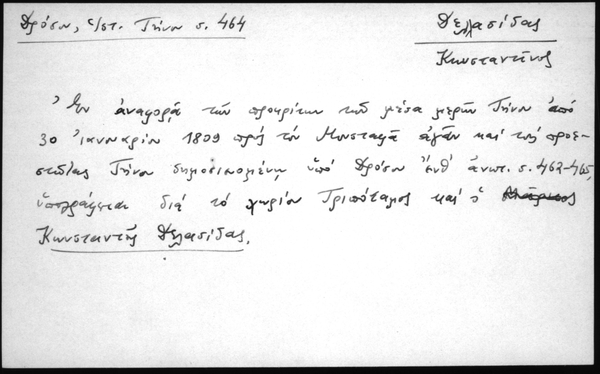 Δρόσου, Ἱστ. Τήνου σ. 464
Δελλασίδας
Κωνσταντῖνος
Ἐν ἀναφορᾷ τῶν προκρίτων τῶν μέσα μερῶν Τήνου ἀπό
30 Ἰανουαρίου 1809 πρός τόν Μουσταφᾶ ἀγᾶν καί τούς προε-
στῶτας Τήνου δημοσιευομένῃ ὑπό Δρόσου ἔνθ' ἀνωτ. σ. 462-465,
ὑπογράφεται διά τό χωρίον Τριπόταμος καί ὁ
Κωνσταντῆς Δελασίδας.